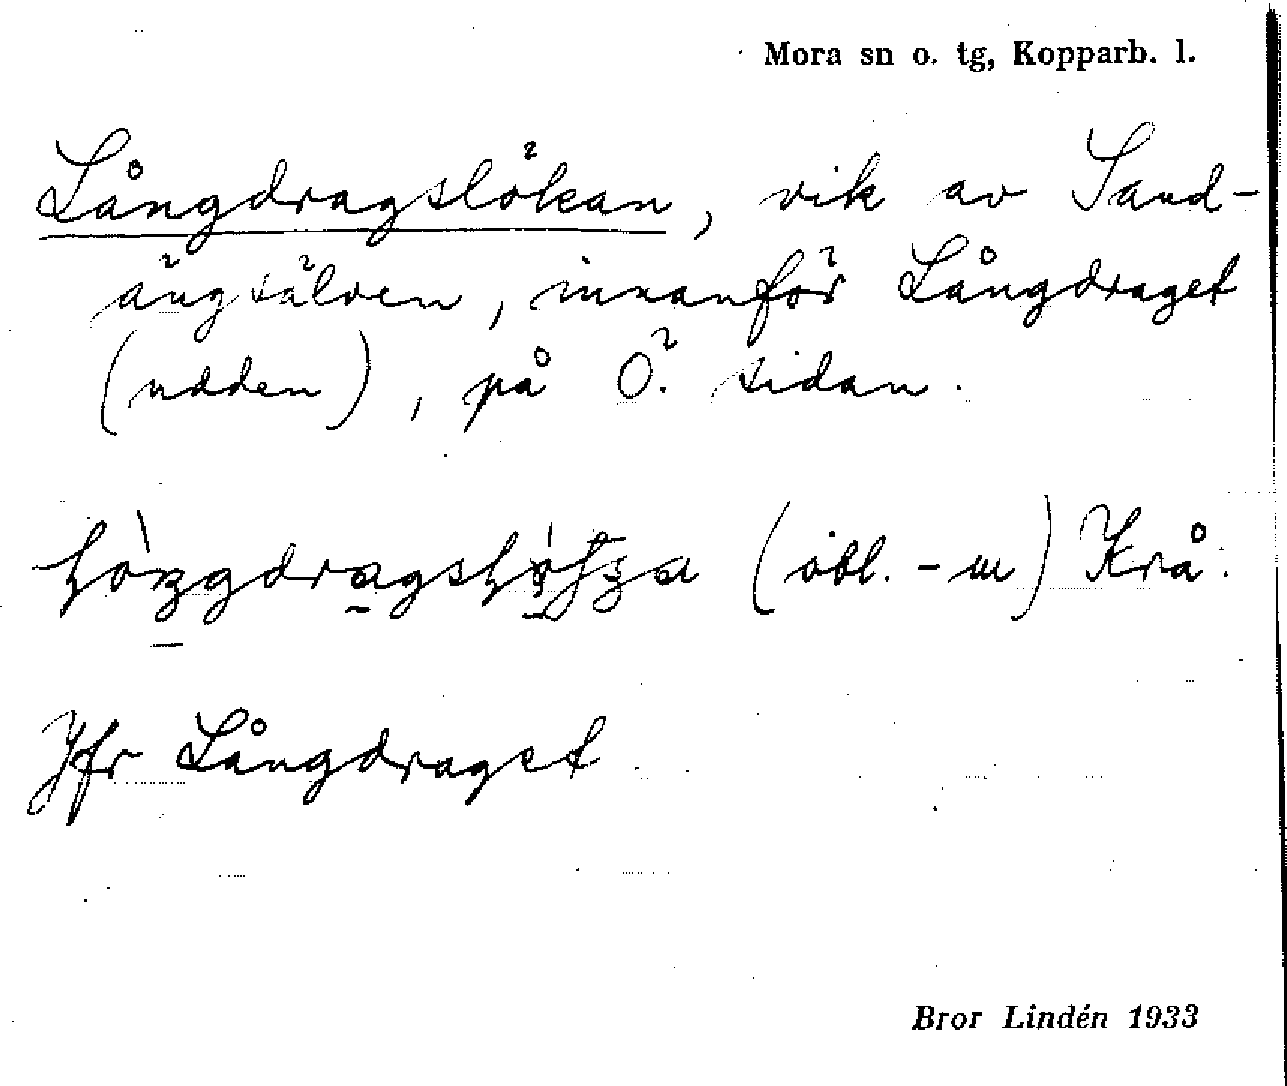 Mora sn o. tg, Kopparb. l.
Långdragslökan, vik av Sand-
ängsälven, innanför Långdraget
(udden), på Ö. sidan.
(obl. -m) Krå.
Jfr Långdraget.
Bror Lindén 1933